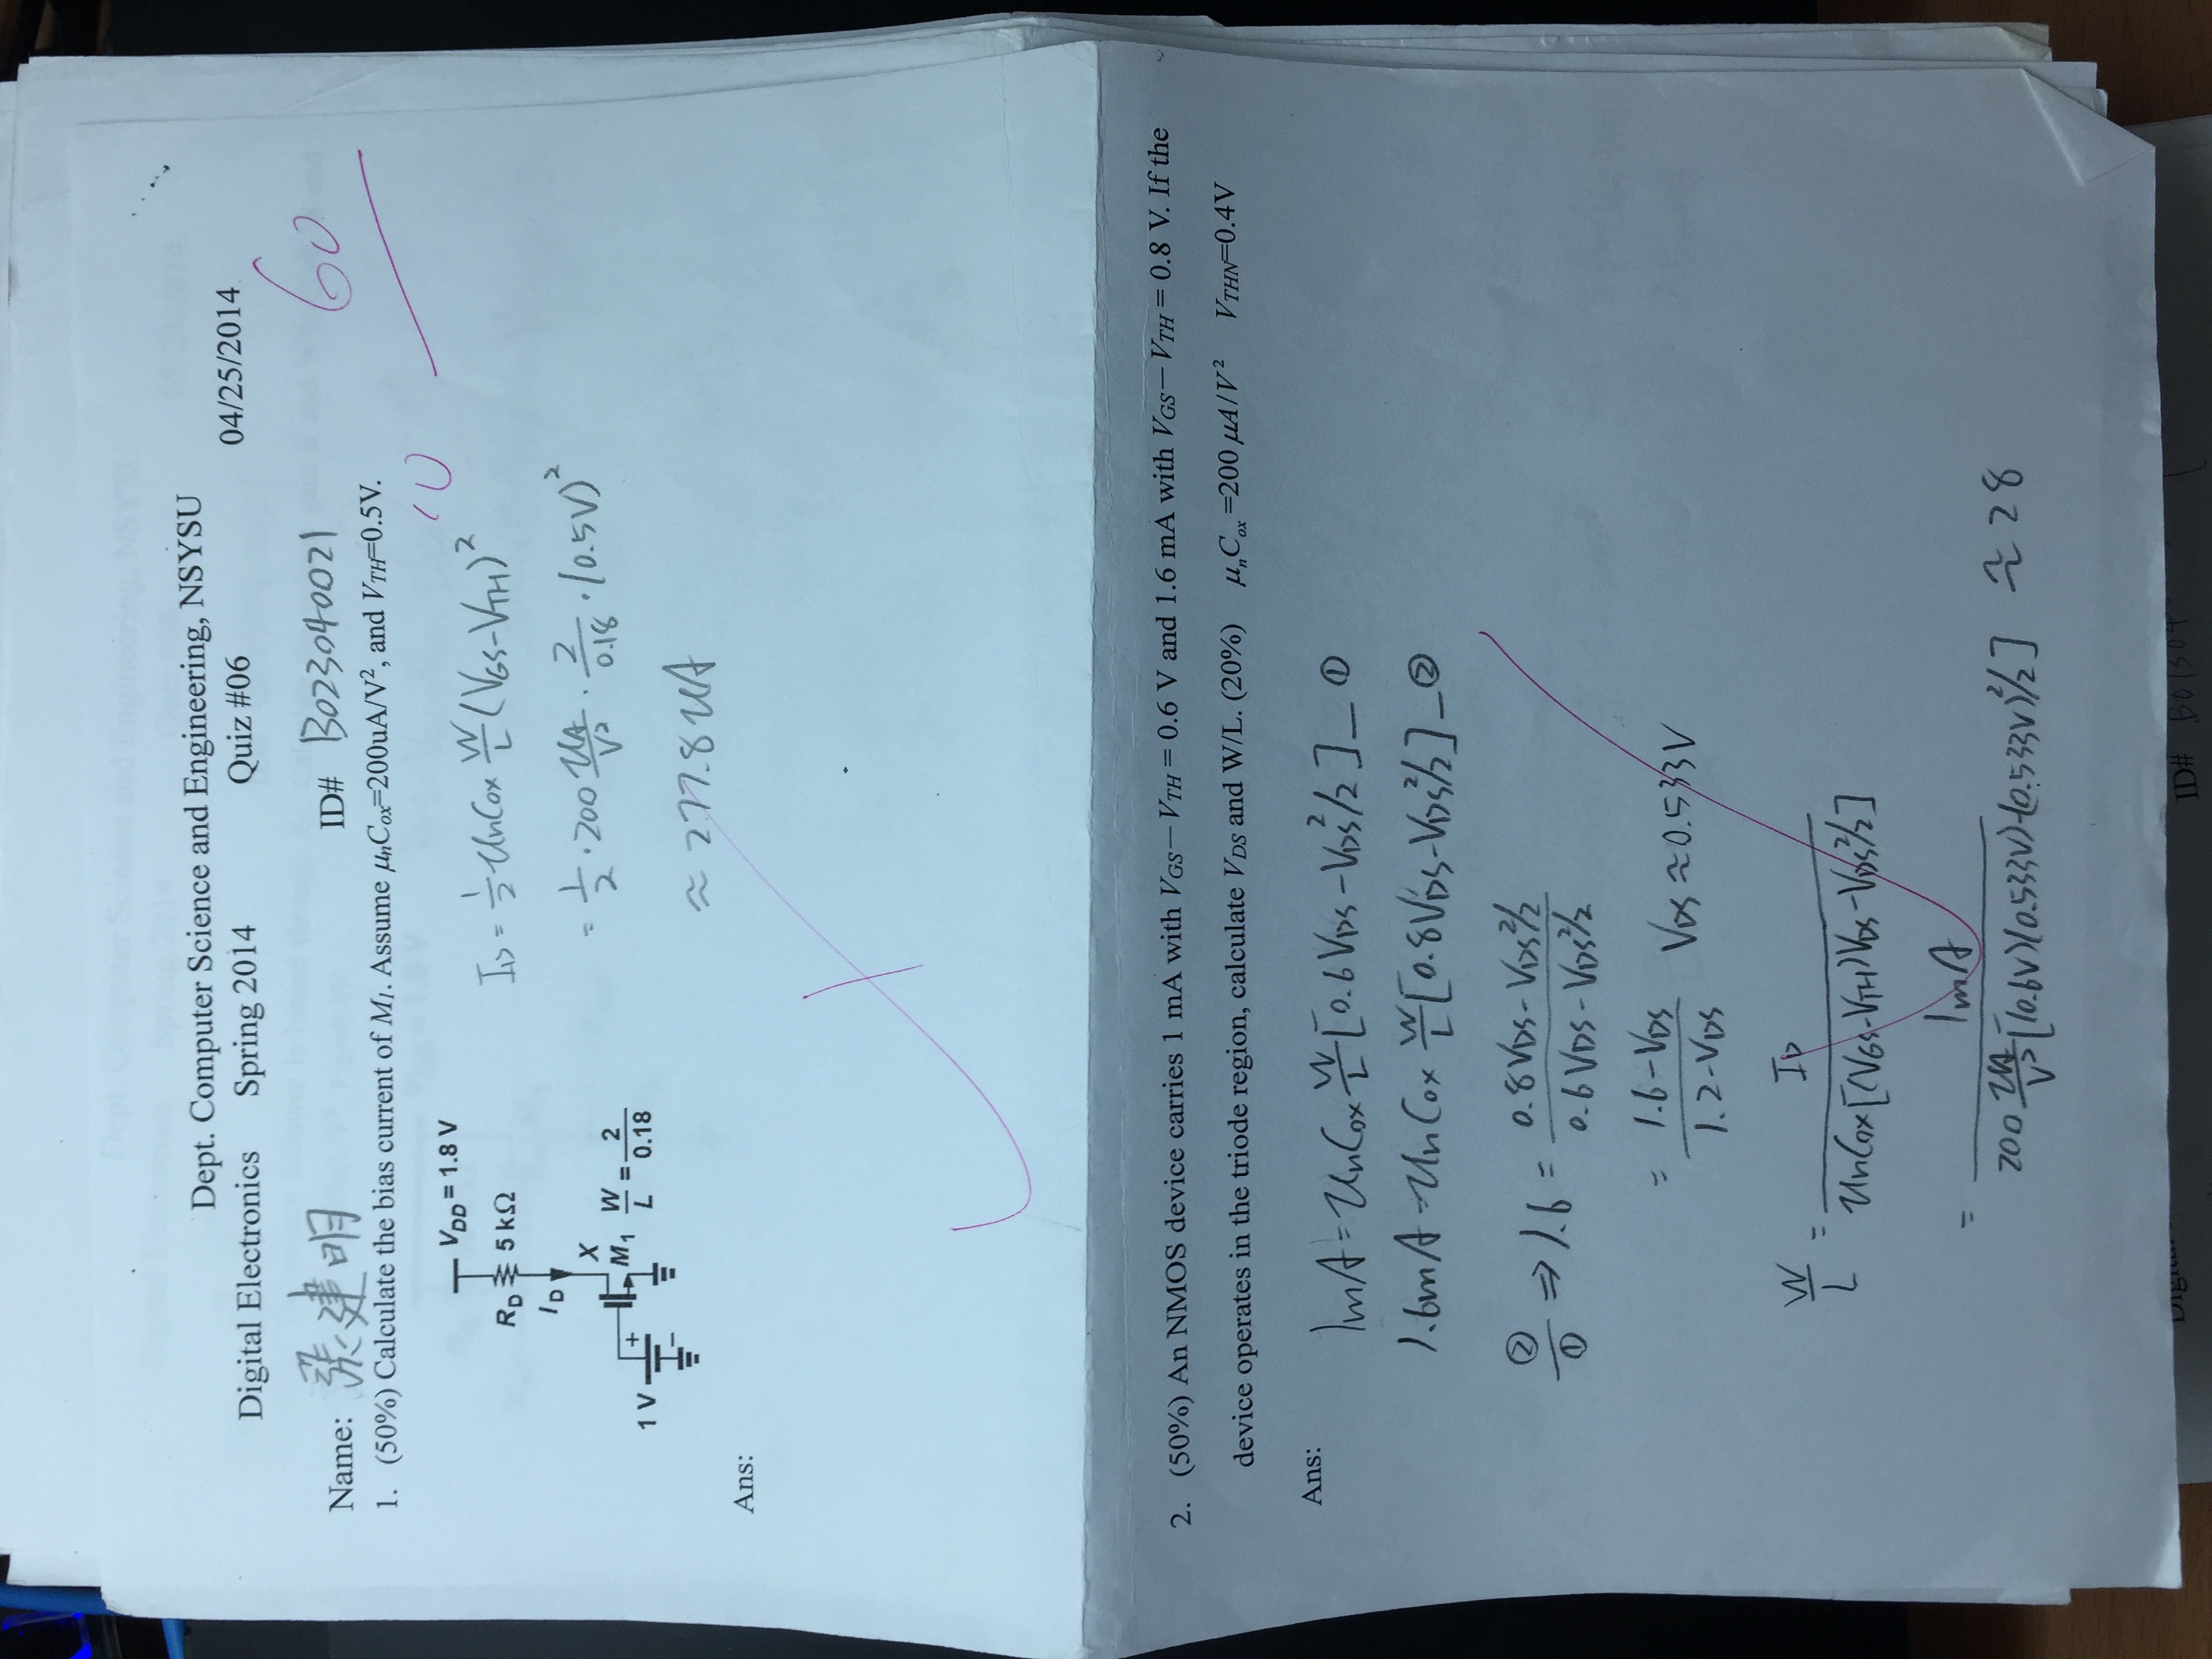 Dept. Computer Science and Engineering, NSYSU
Digital Electronics Spring 2014 Quiz #06 04/25/2014
60
Name: 張建明 ID# B023040021
1. (50%) Calculate the bias current of M1. Assume μnCox=200uA/V², and VTH=0.5V.
10
VDD = 1.8 V
RD 5 kΩ
ID
X
M1 W/L = 2/0.18
1 V + −
ID = 1/2 UnCox W/L (VGS-VTH)²
= 1/2 · 200 UA/V² · 2/0.18 · (0.5V)²
≈ 277.8 UA
Ans:
2. (50%) An NMOS device carries 1 mA with VGS − VTH = 0.6 V and 1.6 mA with VGS − VTH = 0.8 V. If the
device operates in the triode region, calculate VDS and W/L. (20%) μnCox =200 μA/V² VTHN=0.4V
Ans:
1mA = UnCox W/L [0.6 VDS - VDS²/2] — ①
1.6mA = UnCox W/L [0.8VDS - VDS²/2] — ②
②/① ⇒ 1.6 = (0.8VDS - VDS²/2)/(0.6VDS - VDS²/2)
= (1.6-VDS)/(1.2-VDS) VDS ≈ 0.533V
W/L = ID/UnCox[(VGS-VTH)VDS-VDS²/2]
= 1mA/200 UA/V² [(0.6V)(0.533V)-(0.533V)²/2] ≈ 28
ID#